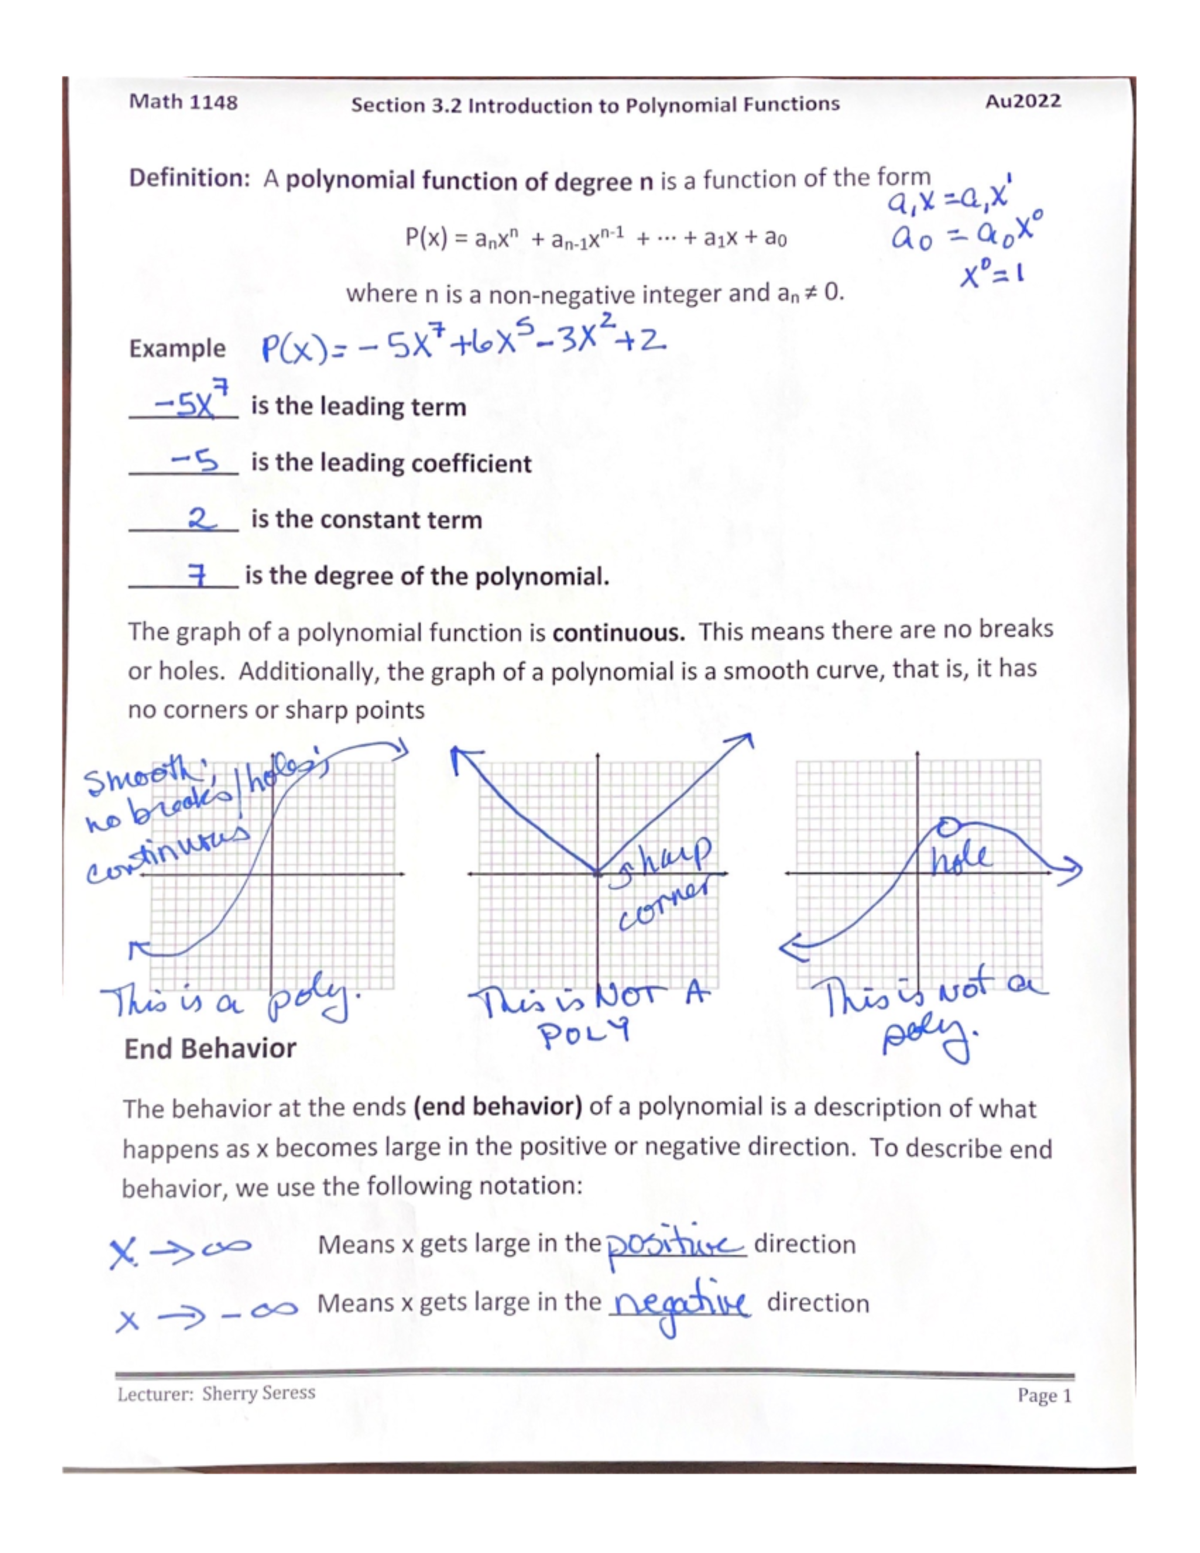 Math 1148 Section 3.2 Introduction to Polynomial Functions Au2022
Definition: A polynomial function of degree n is a function of the form
a₁x = a₁x¹
P(x) = aₙxⁿ + aₙ₋₁xⁿ⁻¹ + ··· + a₁x + a₀
a₀ = a₀x⁰
x⁰ = 1
where n is a non-negative integer and aₙ ≠ 0.
Example P(x) = -5x⁷ + 6x⁵ - 3x² + 2
-5x⁷ is the leading term
-5 is the leading coefficient
2 is the constant term
7 is the degree of the polynomial.
The graph of a polynomial function is continuous. This means there are no breaks
or holes. Additionally, the graph of a polynomial is a smooth curve, that is, it has
no corners or sharp points
Smooth;
no breaks/holes;
continuous
This is a poly.
sharp
corner
This is NOT A
POLY
hole
This is Not a
poly.
End Behavior
The behavior at the ends (end behavior) of a polynomial is a description of what
happens as x becomes large in the positive or negative direction. To describe end
behavior, we use the following notation:
x → ∞ Means x gets large in the positive direction
x → -∞ Means x gets large in the negative direction
Lecturer: Sherry Seress Page 1